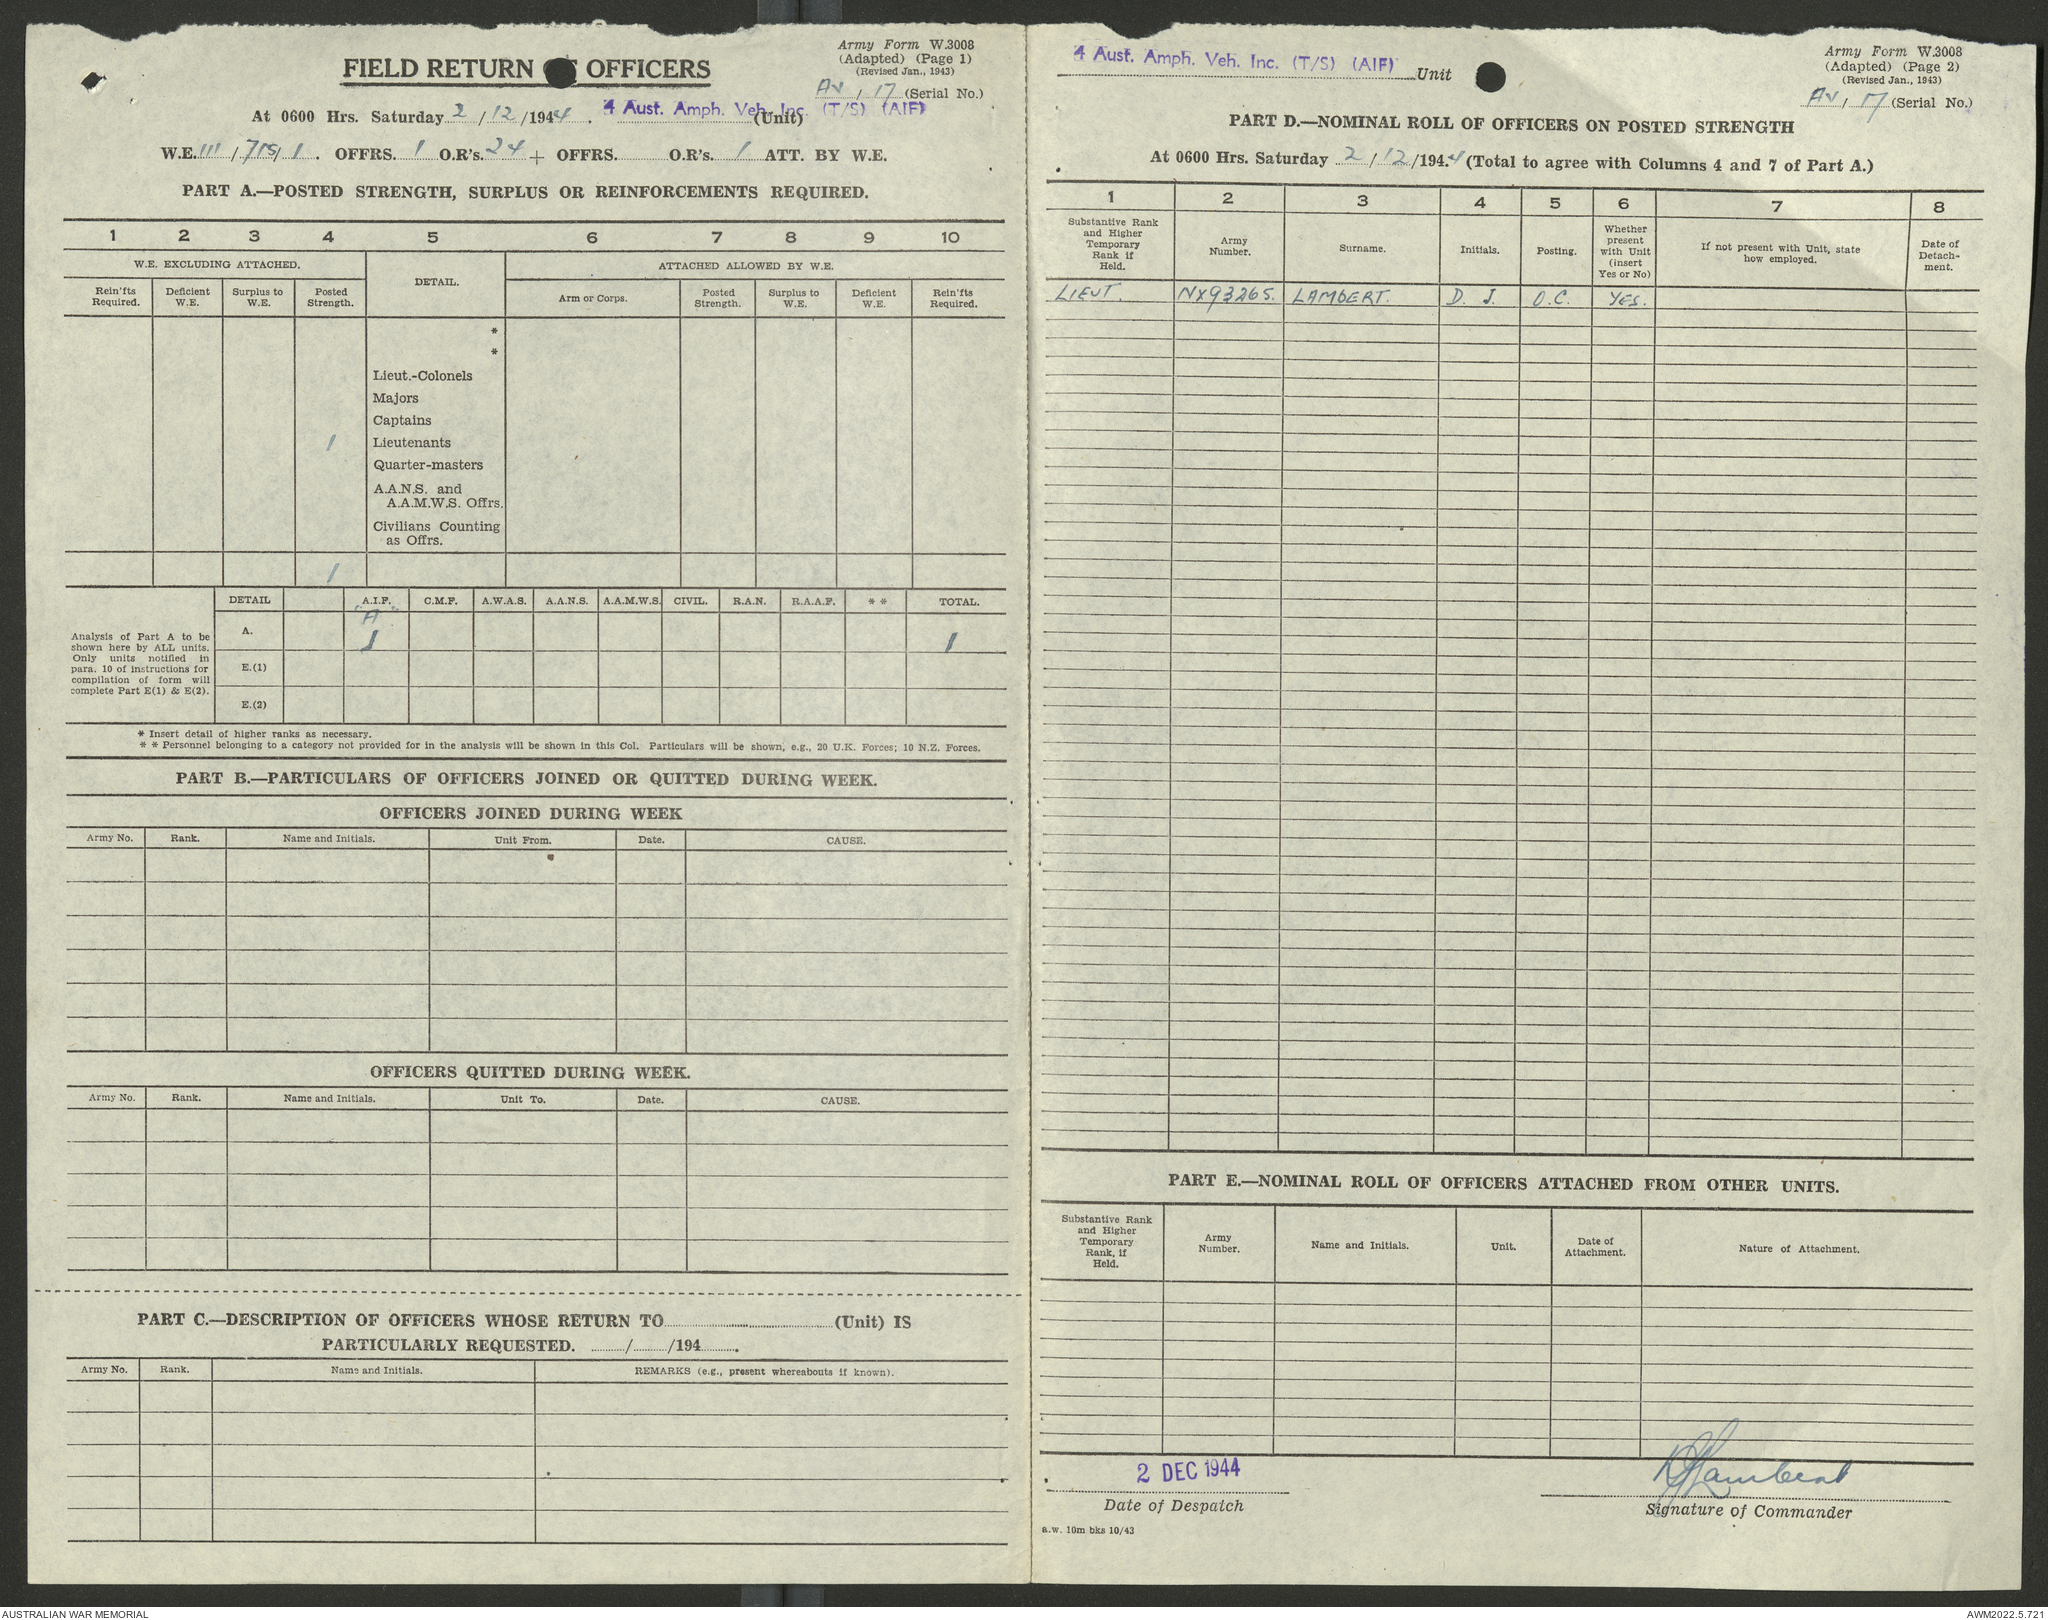 Army Form W.3008
(Adapted) (Page 1)
(Revised Jan., 1943)
FIELD RETURN OFFICERS
Av / 17 (Serial No.)
At 0600 Hrs. Saturday 2 / 12 / 1944. 4 Aust. Amph. Veh. Inc. (T/S) (AIF) (Unit)
W.E. III / 715 / 1. OFFRS. 1 O.R's. 24 + OFFRS. O.R's. 1 ATT. BY W.E.
PART A.—POSTED STRENGTH, SURPLUS OR REINFORCEMENTS REQUIRED.
1 2 3 4 5 6 7 8 9 10
W.E. EXCLUDING ATTACHED. DETAIL. ATTACHED ALLOWED BY W.E.
Rein'fts Required. Deficient W.E. Surplus to W.E. Posted Strength. Arm or Corps. Posted Strength. Surplus to W.E. Deficient W.E. Rein'fts Required.
*
*
Lieut.-Colonels
Majors
Captains
1 Lieutenants
Quarter-masters
A.A.N.S. and
A.A.M.W.S. Offrs.
Civilians Counting
as Offrs.
1
DETAIL A.I.F. C.M.F. A.W.A.S. A.A.N.S. A.A.M.W.S. CIVIL. R.A.N. R.A.A.F. * * TOTAL.
"A"
A. 1 1
E.(1)
E.(2)
Analysis of Part A to be
shown here by ALL units.
Only units notified in
para. 10 of instructions for
compilation of form will
complete Part E(1) & E(2).
* Insert detail of higher ranks as necessary.
* * Personnel belonging to a category not provided for in the analysis will be shown in this Col. Particulars will be shown, e.g., 20 U.K. Forces; 10 N.Z. Forces.
PART B.—PARTICULARS OF OFFICERS JOINED OR QUITTED DURING WEEK.
OFFICERS JOINED DURING WEEK
Army No. Rank. Name and Initials. Unit From. Date. CAUSE.
OFFICERS QUITTED DURING WEEK.
Army No. Rank. Name and Initials. Unit To. Date. CAUSE.
PART C.—DESCRIPTION OF OFFICERS WHOSE RETURN TO (Unit) IS
PARTICULARLY REQUESTED. / /194 .
Army No. Rank. Name and Initials. REMARKS (e.g., present whereabouts if known).
4 Aust. Amph. Veh. Inc. (T/S) (AIF) Unit
Army Form W.3008
(Adapted) (Page 2)
(Revised Jan., 1943)
Av / 17 (Serial No.)
PART D.—NOMINAL ROLL OF OFFICERS ON POSTED STRENGTH
At 0600 Hrs. Saturday 2 / 12 /194.4 (Total to agree with Columns 4 and 7 of Part A.)
1 2 3 4 5 6 7 8
Substantive Rank and Higher Temporary Rank if Held. Army Number. Surname. Initials. Posting. Whether present with Unit (insert Yes or No) If not present with Unit, state how employed. Date of Detach- ment.
LIEUT. NX93265. LAMBERT. D. J. O.C. YES.
PART E.—NOMINAL ROLL OF OFFICERS ATTACHED FROM OTHER UNITS.
Substantive Rank and Higher Temporary Rank, if Held. Army Number. Name and Initials. Unit. Date of Attachment. Nature of Attachment.
2 DEC 1944
Date of Despatch
DJLambert
Signature of Commander
a.w. 10m bks 10/43
AUSTRALIAN WAR MEMORIAL
AWM2022.5.721